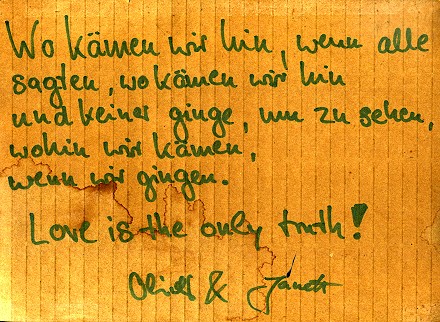 Wo kämen wir hin, wenn alle
sagten, wo kämen wir hin
und keiner ginge, um zu sehen,
wohin wir kämen,
wenn wir gingen.
Love is the only truth!
&